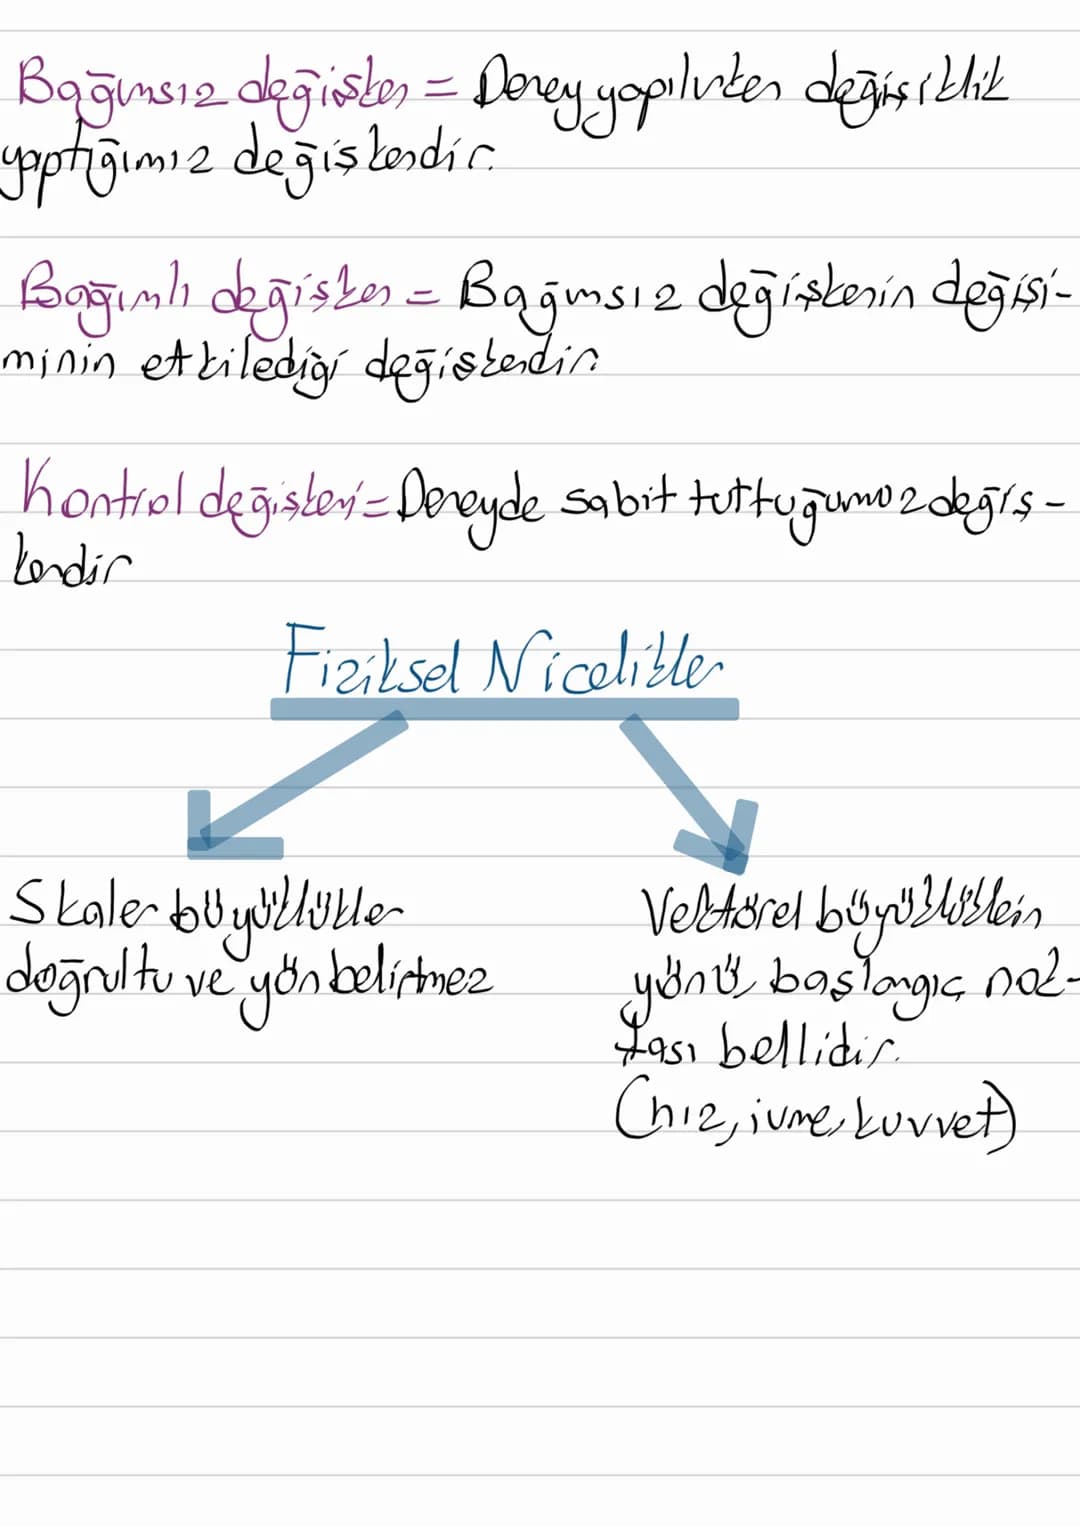 Bağımsız değişken = Deney yapılırken değişiklik
yaptığımız değişkendir.
Bağımlı değişken = Bağımsız değişkenin değişi-
minin etkilediği değişkendir
Kontrol değişkeni = Deneyde sabit tuttuğumuz değiş-
kendir
Fiziksel Nicelikler
Skaler büyüklükler
doğrultu ve yön belirtmez
Vektörel büyüklüklerin
yönü, başlangıç nok-
tası bellidir.
(hız, ivme, kuvvet)